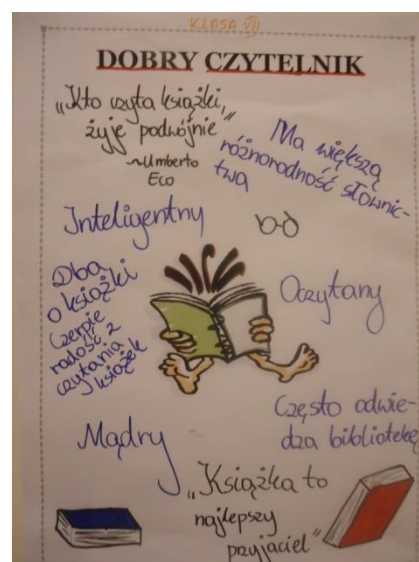 KLASA VII
DOBRY CZYTELNIK
„Kto czyta książki,
żyje podwójnie”
~Umberto
Eco
Ma większą
różnorodność słownic-
twa
Inteligentny
Dba
o książki
Czerpie
radość z
czytania
książek
Oczytany
Często odwie-
dza bibliotekę
Mądry
„Książka to
najlepszy
przyjaciel”